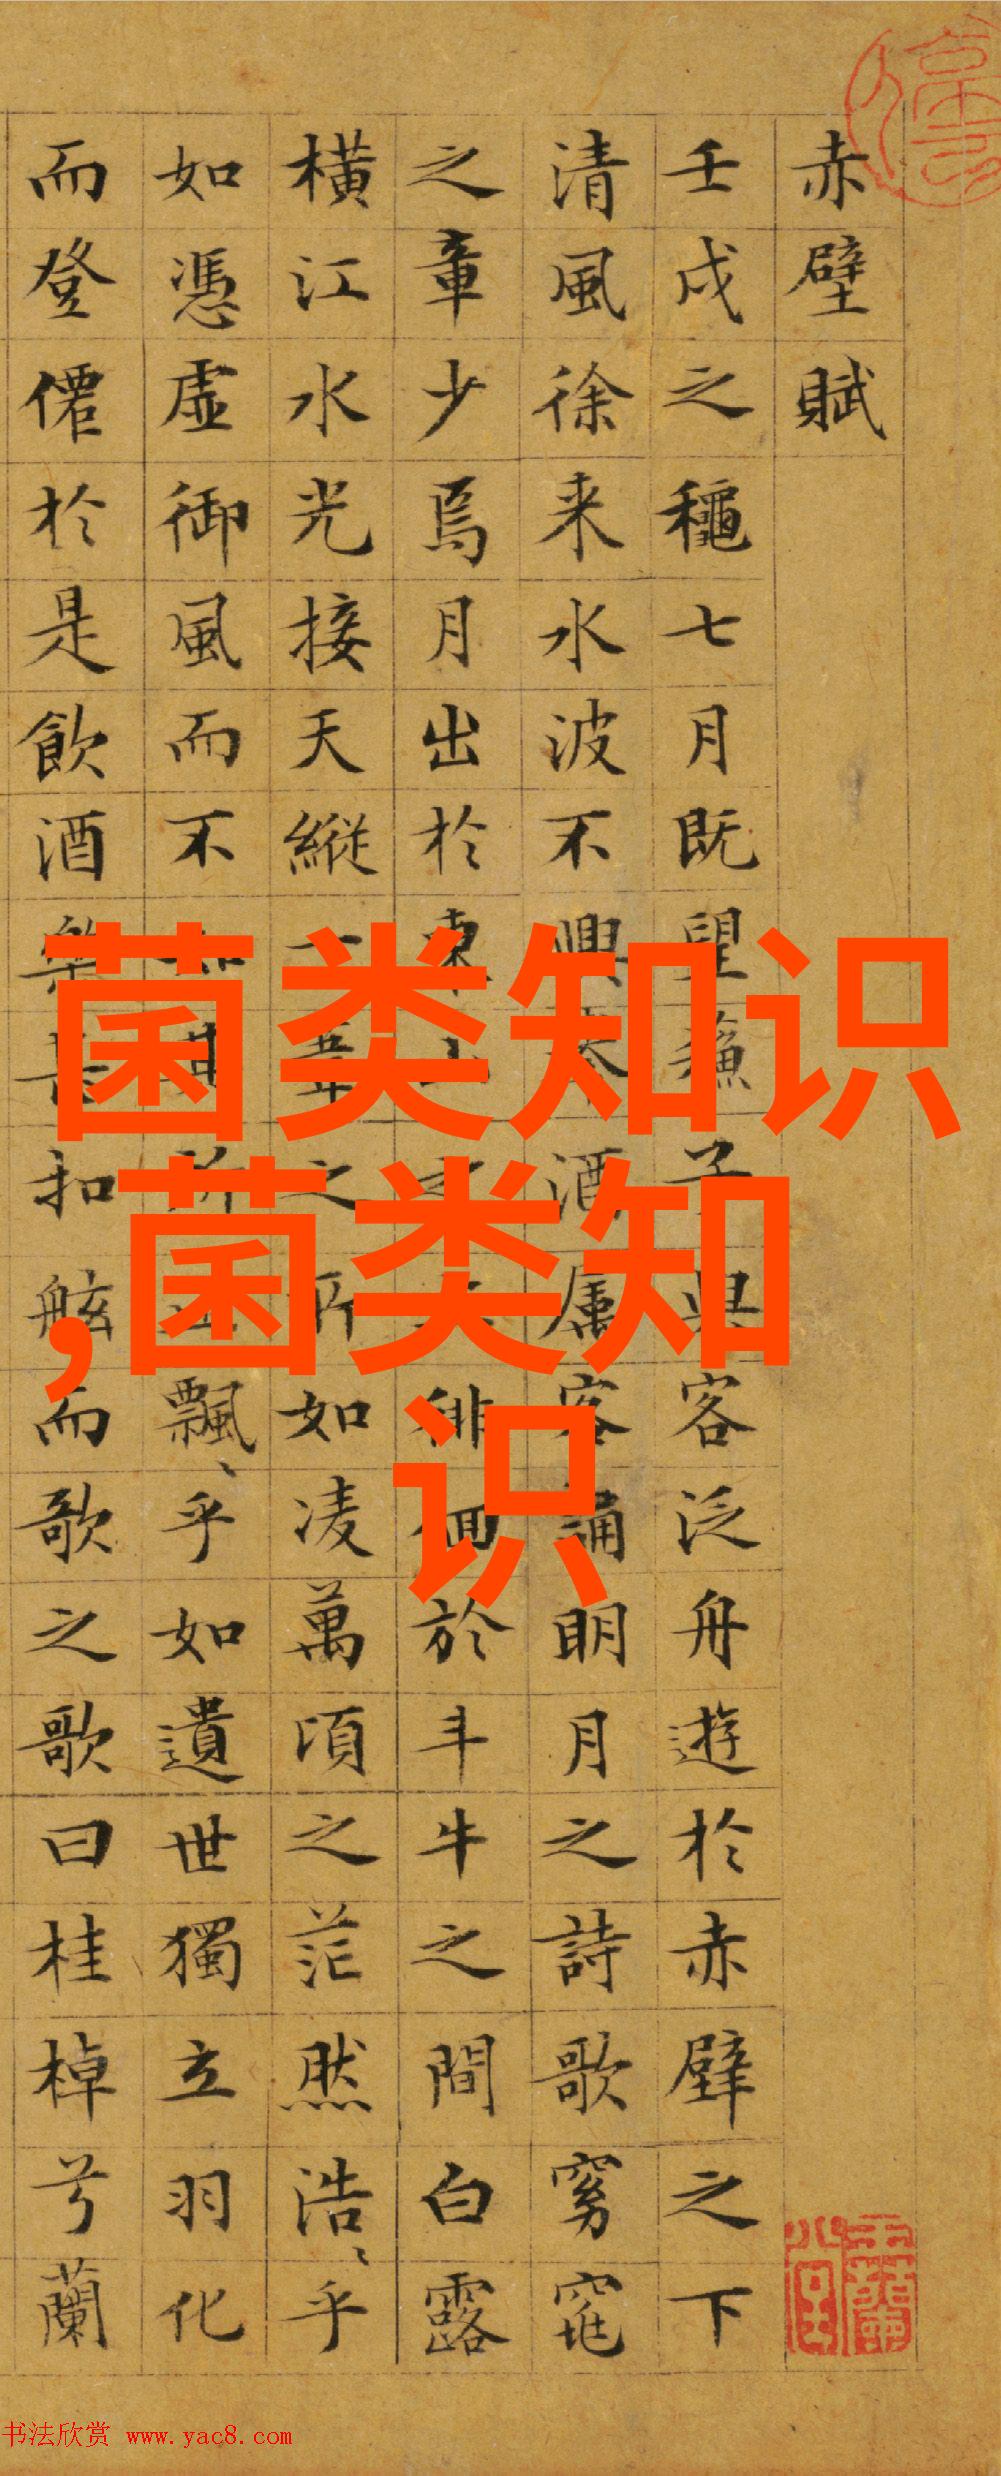 赤壁賦
壬戌之穐七月既望蘓子與客泛舟遊於赤壁之下
清風徐来水波不興酒属客誦明月之詩歌窈窕
之章少焉月出於東山之上徘徊於斗牛之間白露
橫江水光接天縱一葦之所如凌萬頃之茫然浩〻乎
如憑虛御風而不知其所止飄〻乎如遺世獨立羽化
而登僊於是飲酒樂甚扣舷而歌之歌曰桂棹兮蘭
菌类知识
,菌类知
识
书法欣赏 www.yac8.com